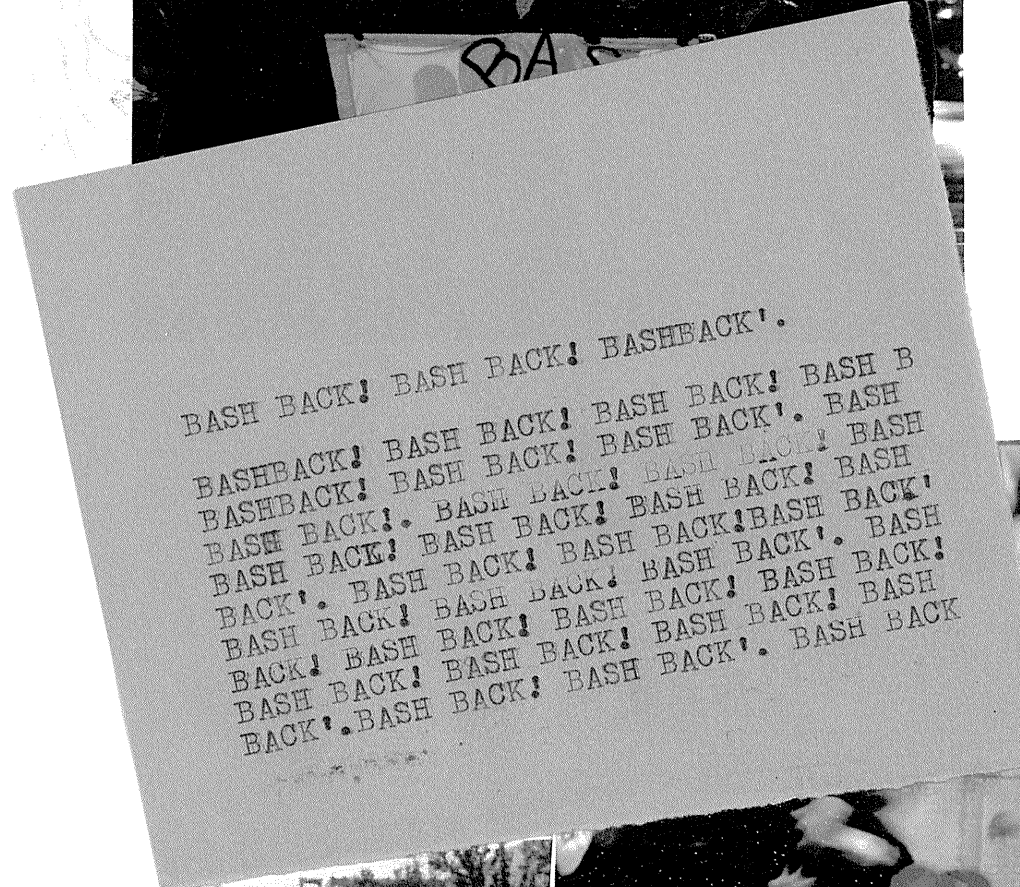 BAS
BASH BACK! BASH BACK! BASHBACK'.
BASHBACK! BASH BACK! BASH BACK! BASH B
BASHBACK! BASH BACK! BASH BACK'. BASH
BASH BACK!. BASH BACK! BASH BACK! BASH
BASH BACK! BASH BACK! BASH BACK! BASH
BACK'. BASH BACK! BASH BACK!BASH BACK'
BASH BACK! BASH BACK! BASH BACK'. BASH
BACK! BASH BACK! BASH BACK! BASH BACK!
BASH BACK! BASH BACK! BASH BACK! BASH
BACK'.BASH BACK! BASH BACK'. BASH BACK